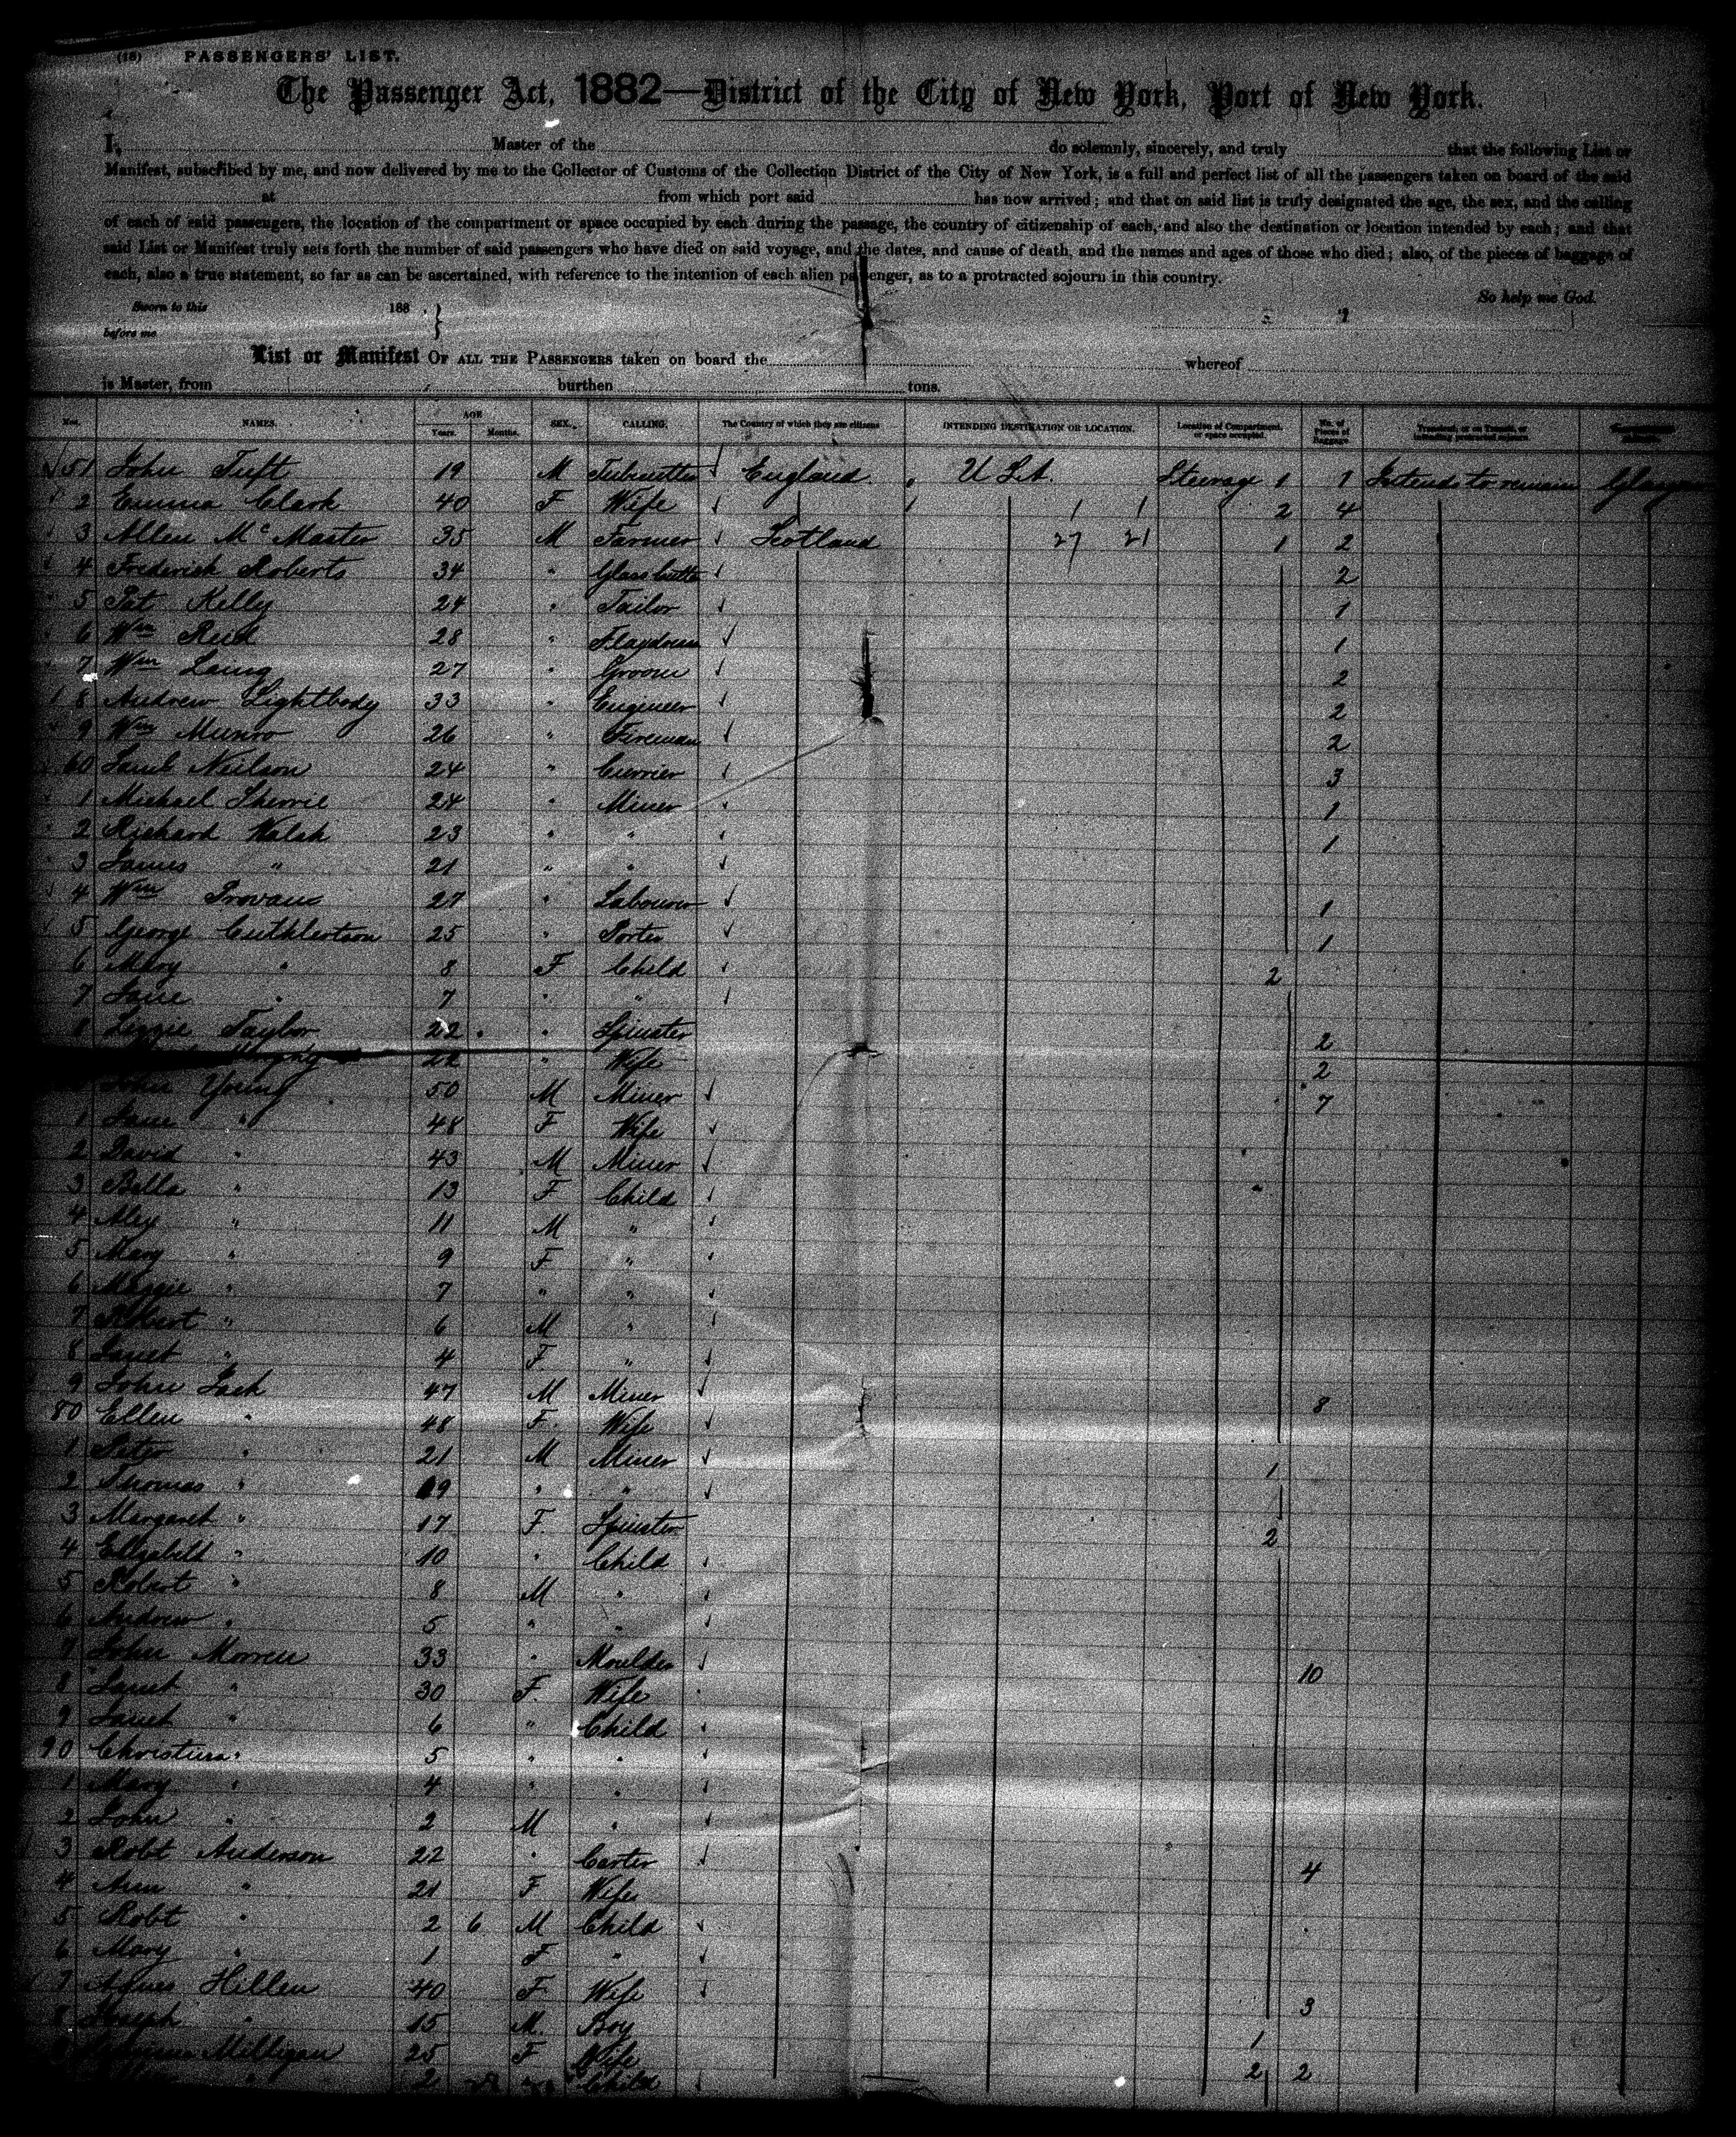 (18) PASSENGERS' LIST.
The Passenger Act, 1882—District of the City of New York, Port of New York.
I, Master of the do solemnly, sincerely, and truly that the following List or
Manifest, subscribed by me, and now delivered by me to the Collector of Customs of the Collection District of the City of New York, is a full and perfect list of all the passengers taken on board of the said
at from which port said has now arrived; and that on said list is truly designated the age, the sex, and the calling
of each of said passengers, the location of the compartment or space occupied by each during the passage, the country of citizenship of each, and also the destination or location intended by each; and that
said List or Manifest truly sets forth the number of said passengers who have died on said voyage, and the dates, and cause of death, and the names and ages of those who died; also, of the pieces of baggage of
each, also a true statement, so far as can be ascertained, with reference to the intention of each alien passenger, as to a protracted sojourn in this country.
So help me God.
Sworn to this 188
before me
List or Manifest OF ALL THE PASSENGERS taken on board the whereof
is Master, from burthen tons.
Nos. NAMES. AGE Years. Months. SEX. CALLING. The Country of which they are citizens INTENDING DESTINATION OR LOCATION. Location of Compartment, or space occupied. No. of Pieces of Baggage Transient, or on Transit, or intending protracted sojourn.
51 John Tuft 19 M England U.S.A. Steerage 1 1 Intends to remain Glasgow
2 Emma Clark 40 F Wife 2 4
3 Allen McMaster 35 M Farmer Scotland 27 21 1 2
4 Frederick Roberts 34 " 2
5 Pat Kelly 24 " Tailor 1
6 Wm Reid 28 " 1
7 Wm Laing 27 " Groom 2
8 Andrew Lightbody 33 " Engineer 2
9 Wm Munro 26 " Fireman 2
60 Neilson 24 " Currier 3
1 Michael Sherrie 24 " Miner 1
2 Richard Walsh 23 " " 1
3 James " 21 " "
4 Wm Provan 27 " Labourer 1
5 George Cuthbertson 25 " Porter 1
6 Mary " 8 F Child 2
7 Jane " 7 " "
8 Lizzie Taylor 22 " Spinster 2
22 " Wife 2
John Young 50 M Miner 7
1 Jane " 48 F Wife
2 David " 43 M Miner
3 Bella " 13 F Child
4 Alex " 11 M "
5 Mary " 9 F "
6 Maggie " 7 " "
7 Robert " 6 M "
8 Janet " 4 F "
9 John Jack 47 M Miner 8
80 Ellen " 48 F Wife
1 Peter " 21 M Miner 1
2 Thomas " 19 " "
3 Margaret " 17 F Spinster 2
4 Elizabeth " 10 " Child
5 Robert " 8 M "
6 Andrew " 5 " "
7 John Morren 33 " Moulder 10
8 Janet " 30 F Wife
9 Janet " 6 " Child
90 Christina " 5 " "
1 Mary " 4 " "
2 John " 2 M "
3 Robt Anderson 22 " Carter 4
4 Ann " 21 F Wife
5 Robt " 2 6 M Child
6 Mary " 1 F "
7 Agnes Hillen 40 F Wife 3
8 Joseph " 15 M Boy 1
Milligan 25 F Wife 2 2
2 Child